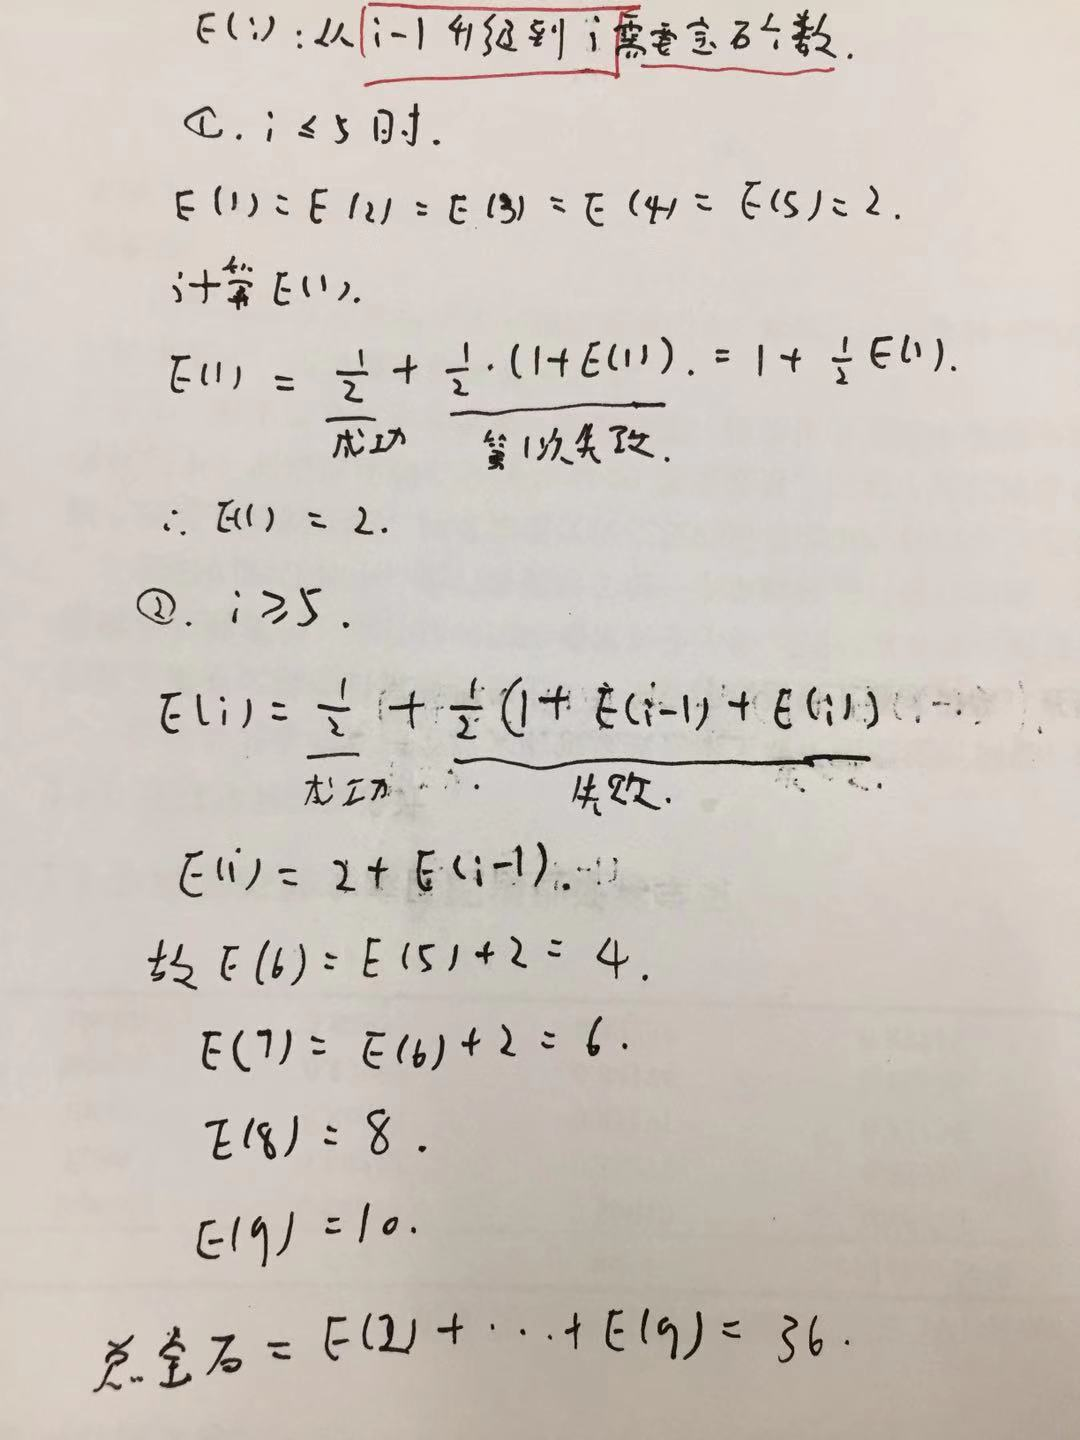 E(i):从i-1升级到i需要宝石个数.
①.i≤5时.
E(1)=E(2)=E(3)=E(4)=E(5)=2.
计算E(1).
E(1)=1/2+1/2·(1+E(1)).=1+1/2E(1).
成功 第1次失败.
∴E(1)=2.
②.i≥5.
E(i)=1/2+1/2(1+E(i-1)+E(i))
成功 失败.
E(i)=2+E(i-1).
故E(6)=E(5)+2=4.
E(7)=E(6)+2=6.
E(8)=8.
E(9)=10.
总宝石=E(2)+···+E(9)=36.